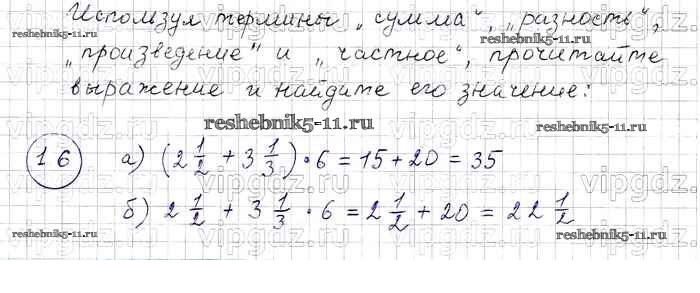 Используя термины „сумма“, „разность“,
reshebnik5-11.ru reshebnik5-11.ru
„произведение“ и „частное“, прочитайте
выражение и найдите его значение:
reshebnik5-11.ru
16 а) (2 1/2 + 3 1/3) · 6 = 15 + 20 = 35
б) 2 1/2 + 3 1/3 · 6 = 2 1/2 + 20 = 22 1/2
reshebnik5-11.ru reshebnik5-11.ru
vipgdz.ru vipgdz.ru vipgdz.ru